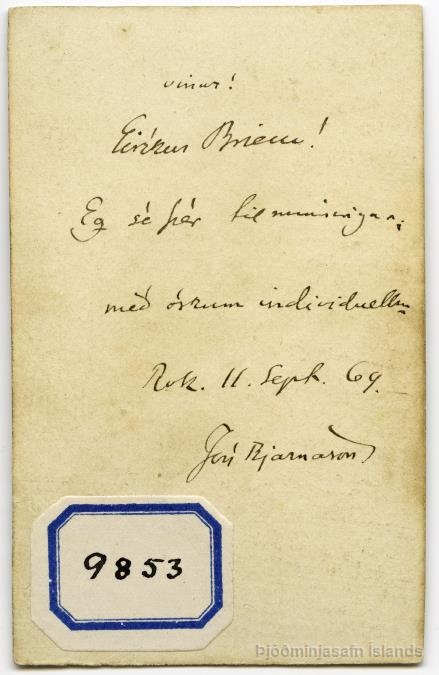 vinur!
Eiríkur Briem!
Eg sé þér til minningar
með óskum individuellu
Rvk. 11. Sept. 69.
Jón Bjarnason
9853
Þjóðminjasafn Íslands